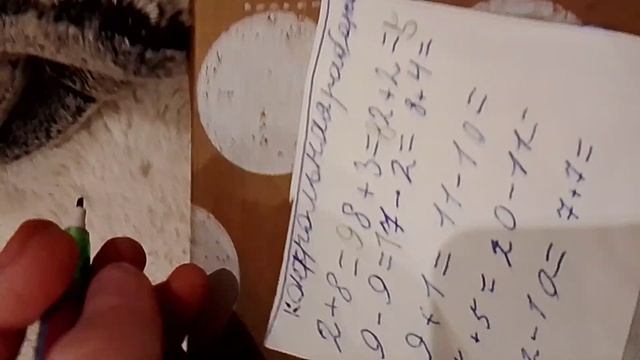 контрольная работа
2+8= 98+3= 82+2=
9-9= 17-2= 8+4=
9+1= 11-10=
+5= 20-11=
-10= 7+7=